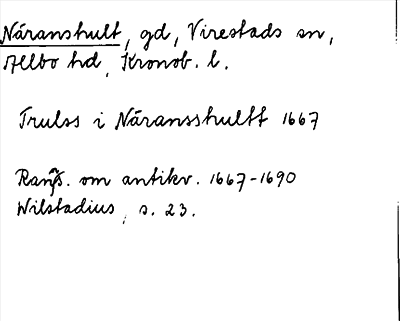 Näranshult, gd, Virestads sn,
Allbo hd, Kronob. l.
Trulss i Näransshultt 1667
om antikv. 1667-1690
Wilstadius, s. 23.